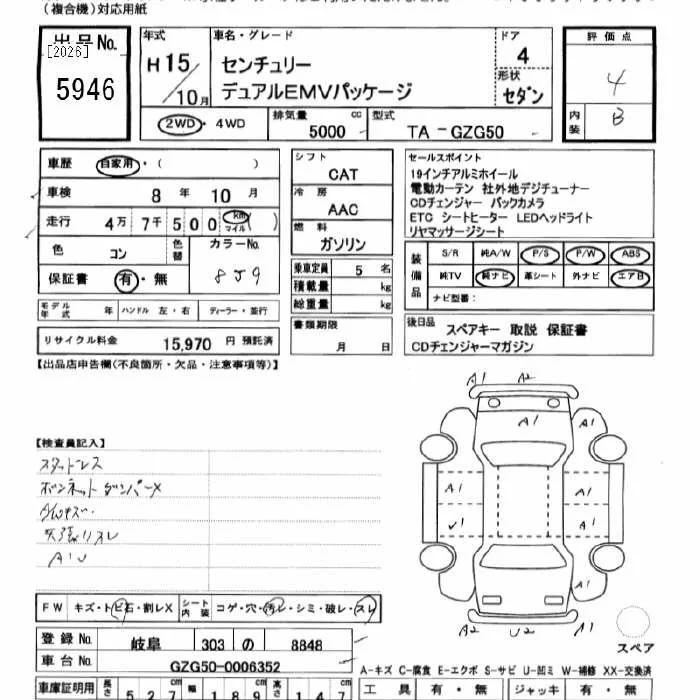 (複合機)対応用紙
出品No.
[2026]
5946
年式
H15/10月
車名・グレード
センチュリー
デュアルEMVパッケージ
ドア
4
形状
セダン
評価点
4
内装
B
2WD・4WD
排気量
5000 cc
型式
TA－GZG50
車歴 自家用・( )
車検 8年 10月
走行 4万 7千 500 km マイル ( )
色 コン
色替
カラーNo.
8J9
保証書 有・無
モデル年式 年 ハンドル 左・右 ディーラー・並行
リサイクル料金 15,970 円 預託済
シフト
CAT
冷房
AAC
燃料
ガソリン
乗車定員 5 名
積載量 kg
総重量 kg
書類期限
月 日
セールスポイント
19インチアルミホイール
電動カーテン 社外地デジチューナー
CDチェンジャー バックカメラ
ETC シートヒーター LEDヘッドライト
リヤマッサージシート
装備品
S/R 純A/W P/S P/W ABS
純TV 純ナビ 革シート 外ナビ エアB
ナビ型番：
後日品 スペアキー 取説 保証書
CDチェンジャーマガジン
【出品店申告欄(不良箇所・欠品・注意事項等)】
【検査員記入】
スタッドレス
ボンネットダンパーX
天張リスレ
A1 A2
A1 A1
A1 A1
A1
A1
A1
A2 U2 A1
スペア
FW キズ・トビ石・割レX シート内装 コゲ・穴・汚レ・シミ・破レ・スレ
登録No. 岐阜 303 の 8848
車台No. GZG50-0006352
A-キズ C-腐食 E-エクボ S-サビ U-凹ミ W-補修 XX-交換済
車庫証明用 長さ 527 cm 幅 189 cm 高さ 147 cm
工具 有・無 ジャッキ 有・無